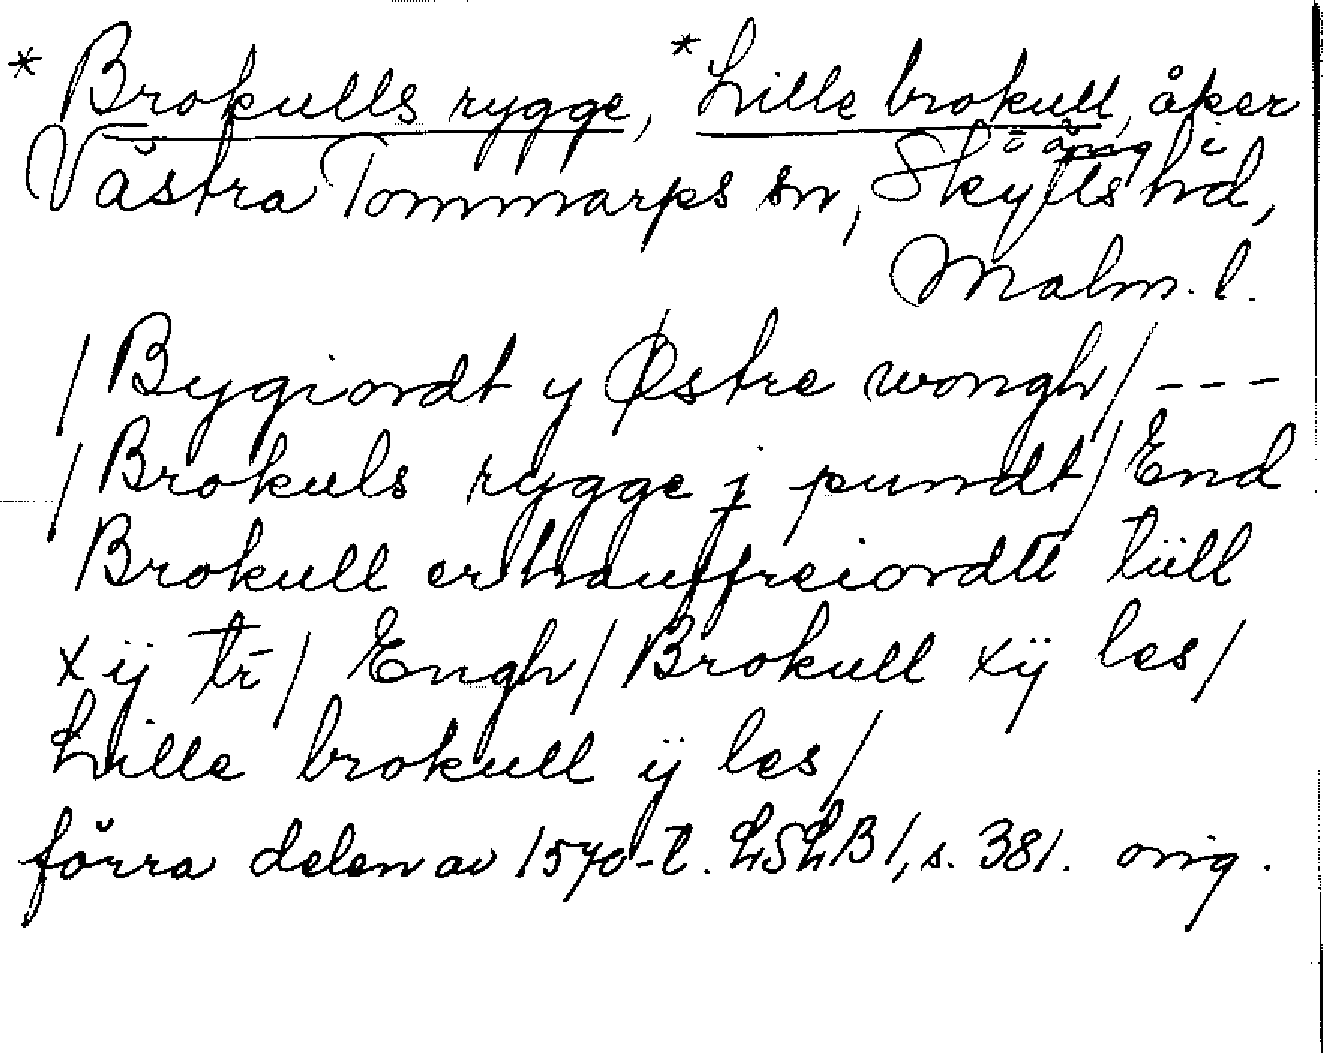 * Brokulls rygge, * Lille brokull, åker
o äng i
Västra Tommarps sn, Skytts hd,
Malm. l.
/ Bygiordt y Østre wongh / ---
/ Brokuls rygge j pundt / End
Brokull er hauffreiordtt tiill
xij tr / Engh / Brokull xij les /
Lille brokull ij les /
förra delen av 1570-t. LSLB 1, s. 381. orig.